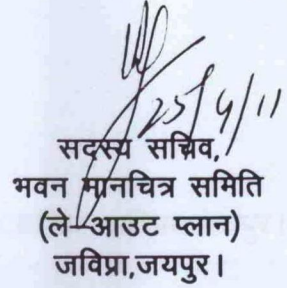 25/4/11
सदस्य सचिव,
भवन मानचित्र समिति
(ले-आउट प्लान)
जविप्रा,जयपुर।